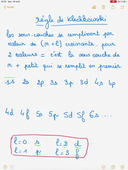 règle de Klechkowski
les sous-couches se remplissent par
valeur de (n + l) croissante, pour
2 valeurs = c'est la sous couche de
n + petit qui se remplit en premier
1s 2s 2p 3s 3p 3d 4s 4p
4d 4f 5s 5p 5d 5f 6s ...
l=0 s l=2 d
l=1 p l=3 f